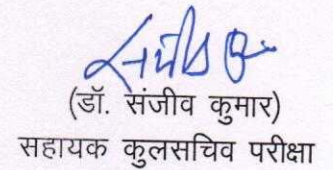 (डॉ. संजीव कुमार)
सहायक कुलसचिव परीक्षा